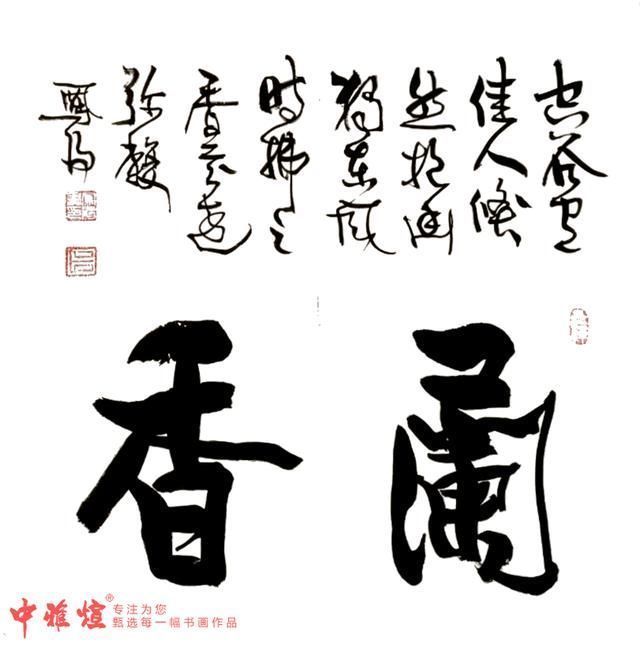 空谷有
佳人倏
然抱幽
獨東風
時拂之
香芬遠
弥馥
蘭香
中雅煊®
专注为您
甄选每一幅书画作品